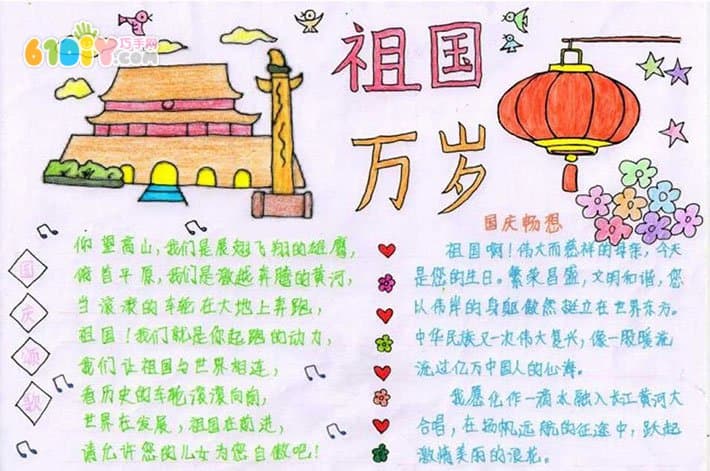 61DIY巧手网
.com
祖国
万岁
国庆颂歌
仰望高山,我们是展翅飞翔的雄鹰,
俯首平原,我们是激越奔腾的黄河,
当滚滚的车轮在大地上奔跑,
祖国!我们就是你起跑的动力,
我们让祖国与世界相连,
看历史的车轮滚滚向前,
世界在发展,祖国在前进,
请允许您的儿女为您自傲吧!
国庆畅想
祖国啊!伟大而慈祥的母亲,今天
是您的生日。繁荣昌盛,文明和谐,您
以伟岸的身躯傲然挺立在世界东方。
中华民族又一次伟大复兴,像一股暖流
流过亿万中国人的心海。
我愿化作一滴水融入长江黄河大
合唱,在扬帆远航的征途中,跃起
激情美丽的浪花。